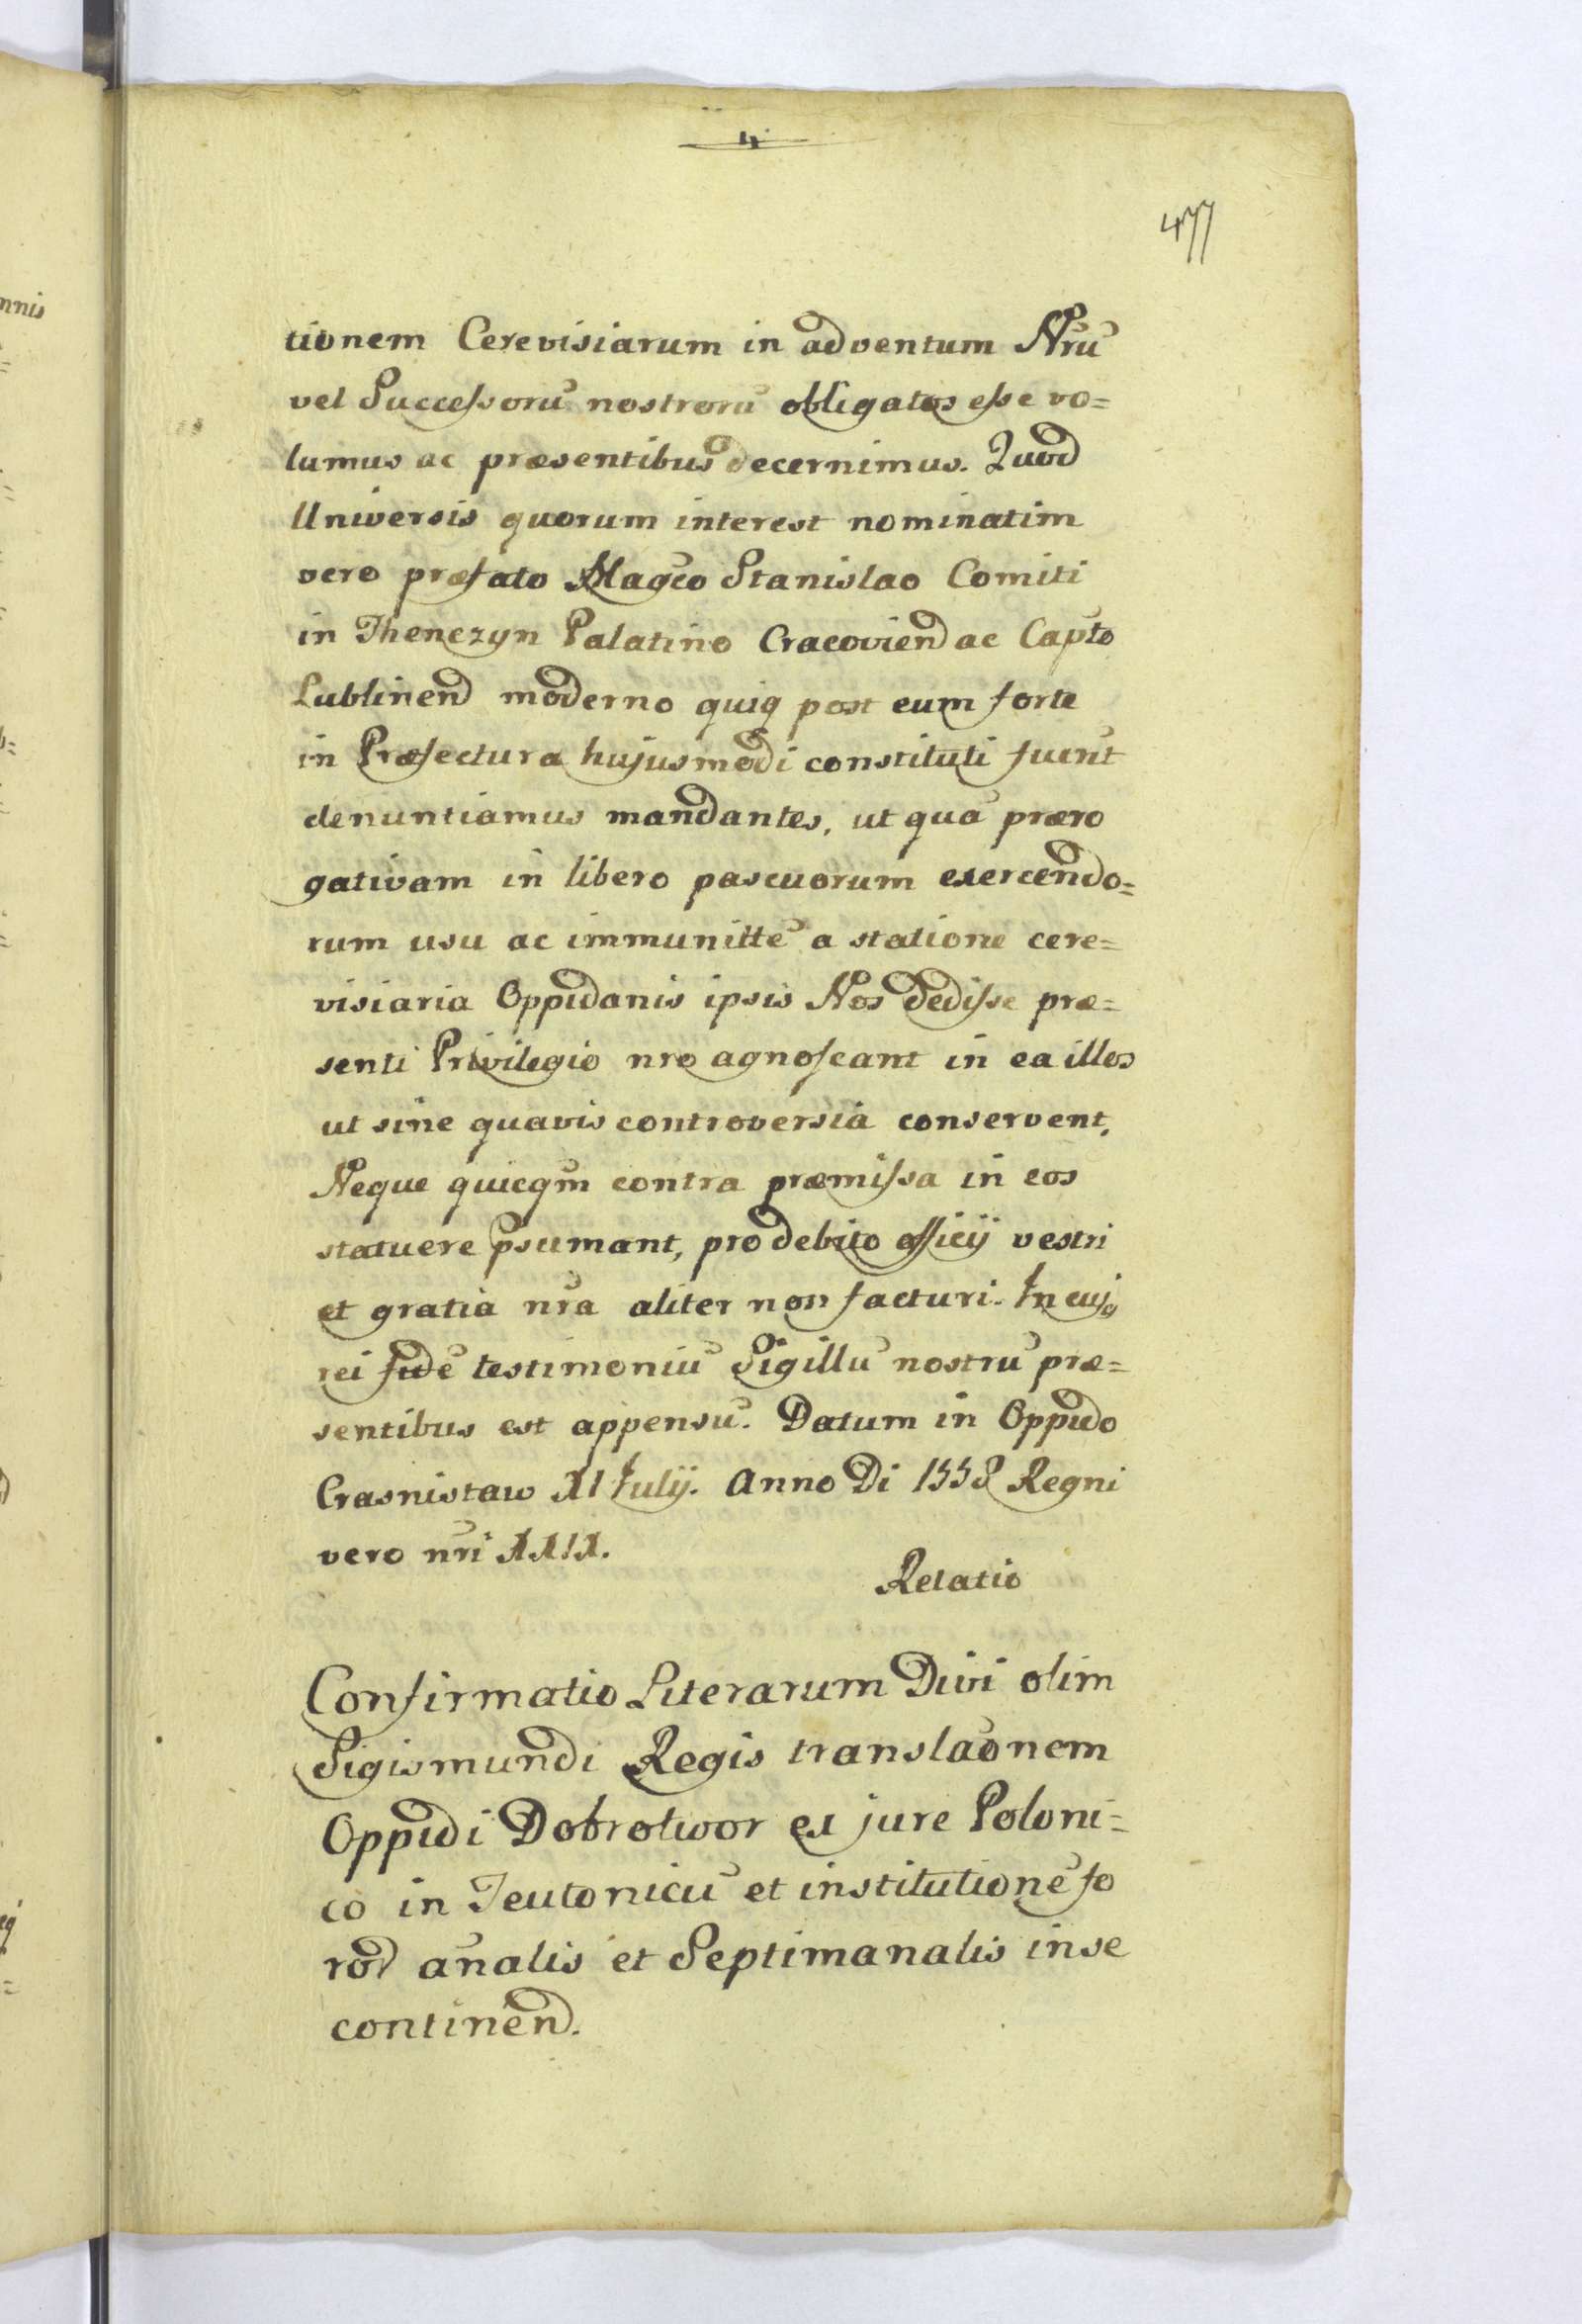 4
477
tionem Cerevisiarum in adventum Nrũ
vel Successorũ nostrorũ obligatos esse vo=
lumus ac præsentibus decernimus. Quod
Universis quorum interest nominatim
vero præfato Magco Stanislao Comiti
in Thenczyn Palatino Cracovien ac Capto
Lublinen moderno quiq post eum forte
in Præfectura hujusmodi constituti fuerñt
denuntiamus mandantes, ut quã præro
gativam in libero pascuorum exercendo=
rum usu ac immunitte a statione cere=
visiaria Oppidanis ipsis Nos dedisse præ=
senti Privilegio nro agnoscant in ea illos
ut sine quavis controversia conservent,
Neque quicqm contra præmissa in eos
statuere psumant, pro debito officij vestri
et gratia nra aliter non facturi. In cujq
rei fidẽ testimoniũ Sigillũ nostrũ præ=
sentibus est appensũ. Datum in Oppido
Crasnistaw XI Julij. Anno Di 1558 Regni
vero nri XXIX.
Relatio
Confirmatio Literarum Divi olim
Sigismundi Regis translaõnem
Oppidi Dobrotwor ex jure Poloni=
co in Teutonicũ et institutionẽ fo
ro añalis et Septimanalis in se
continen.
nnis